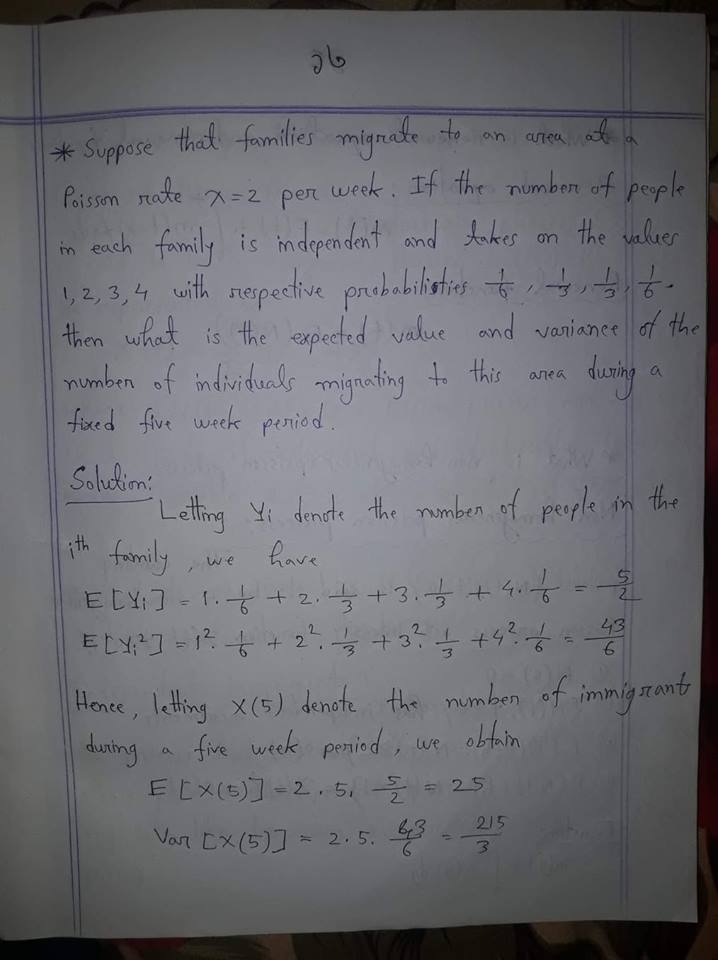 26
* Suppose that families migrate to an area at a
Poisson rate λ=2 per week. If the number of people
in each family is independent and takes on the values
1, 2, 3, 4 with respective probabilisties 1/6, 1/3, 1/3, 1/6.
then what is the expected value and variance of the
number of individuals migrating to this area during a
fixed five week period.
Solution:
Letting Yi denote the number of people in the
ith family, we have
E[Yi] = 1. 1/6 + 2. 1/3 + 3. 1/3 + 4. 1/6 = 5/2
E[Yi²] = 1². 1/6 + 2². 1/3 + 3². 1/3 + 4². 1/6 = 43/6
Hence, letting X(5) denote the number of immigrant
during a five week period, we obtain
E[X(5)] = 2. 5. 5/2 = 25
Var[X(5)] = 2. 5. 43/6 = 215/3